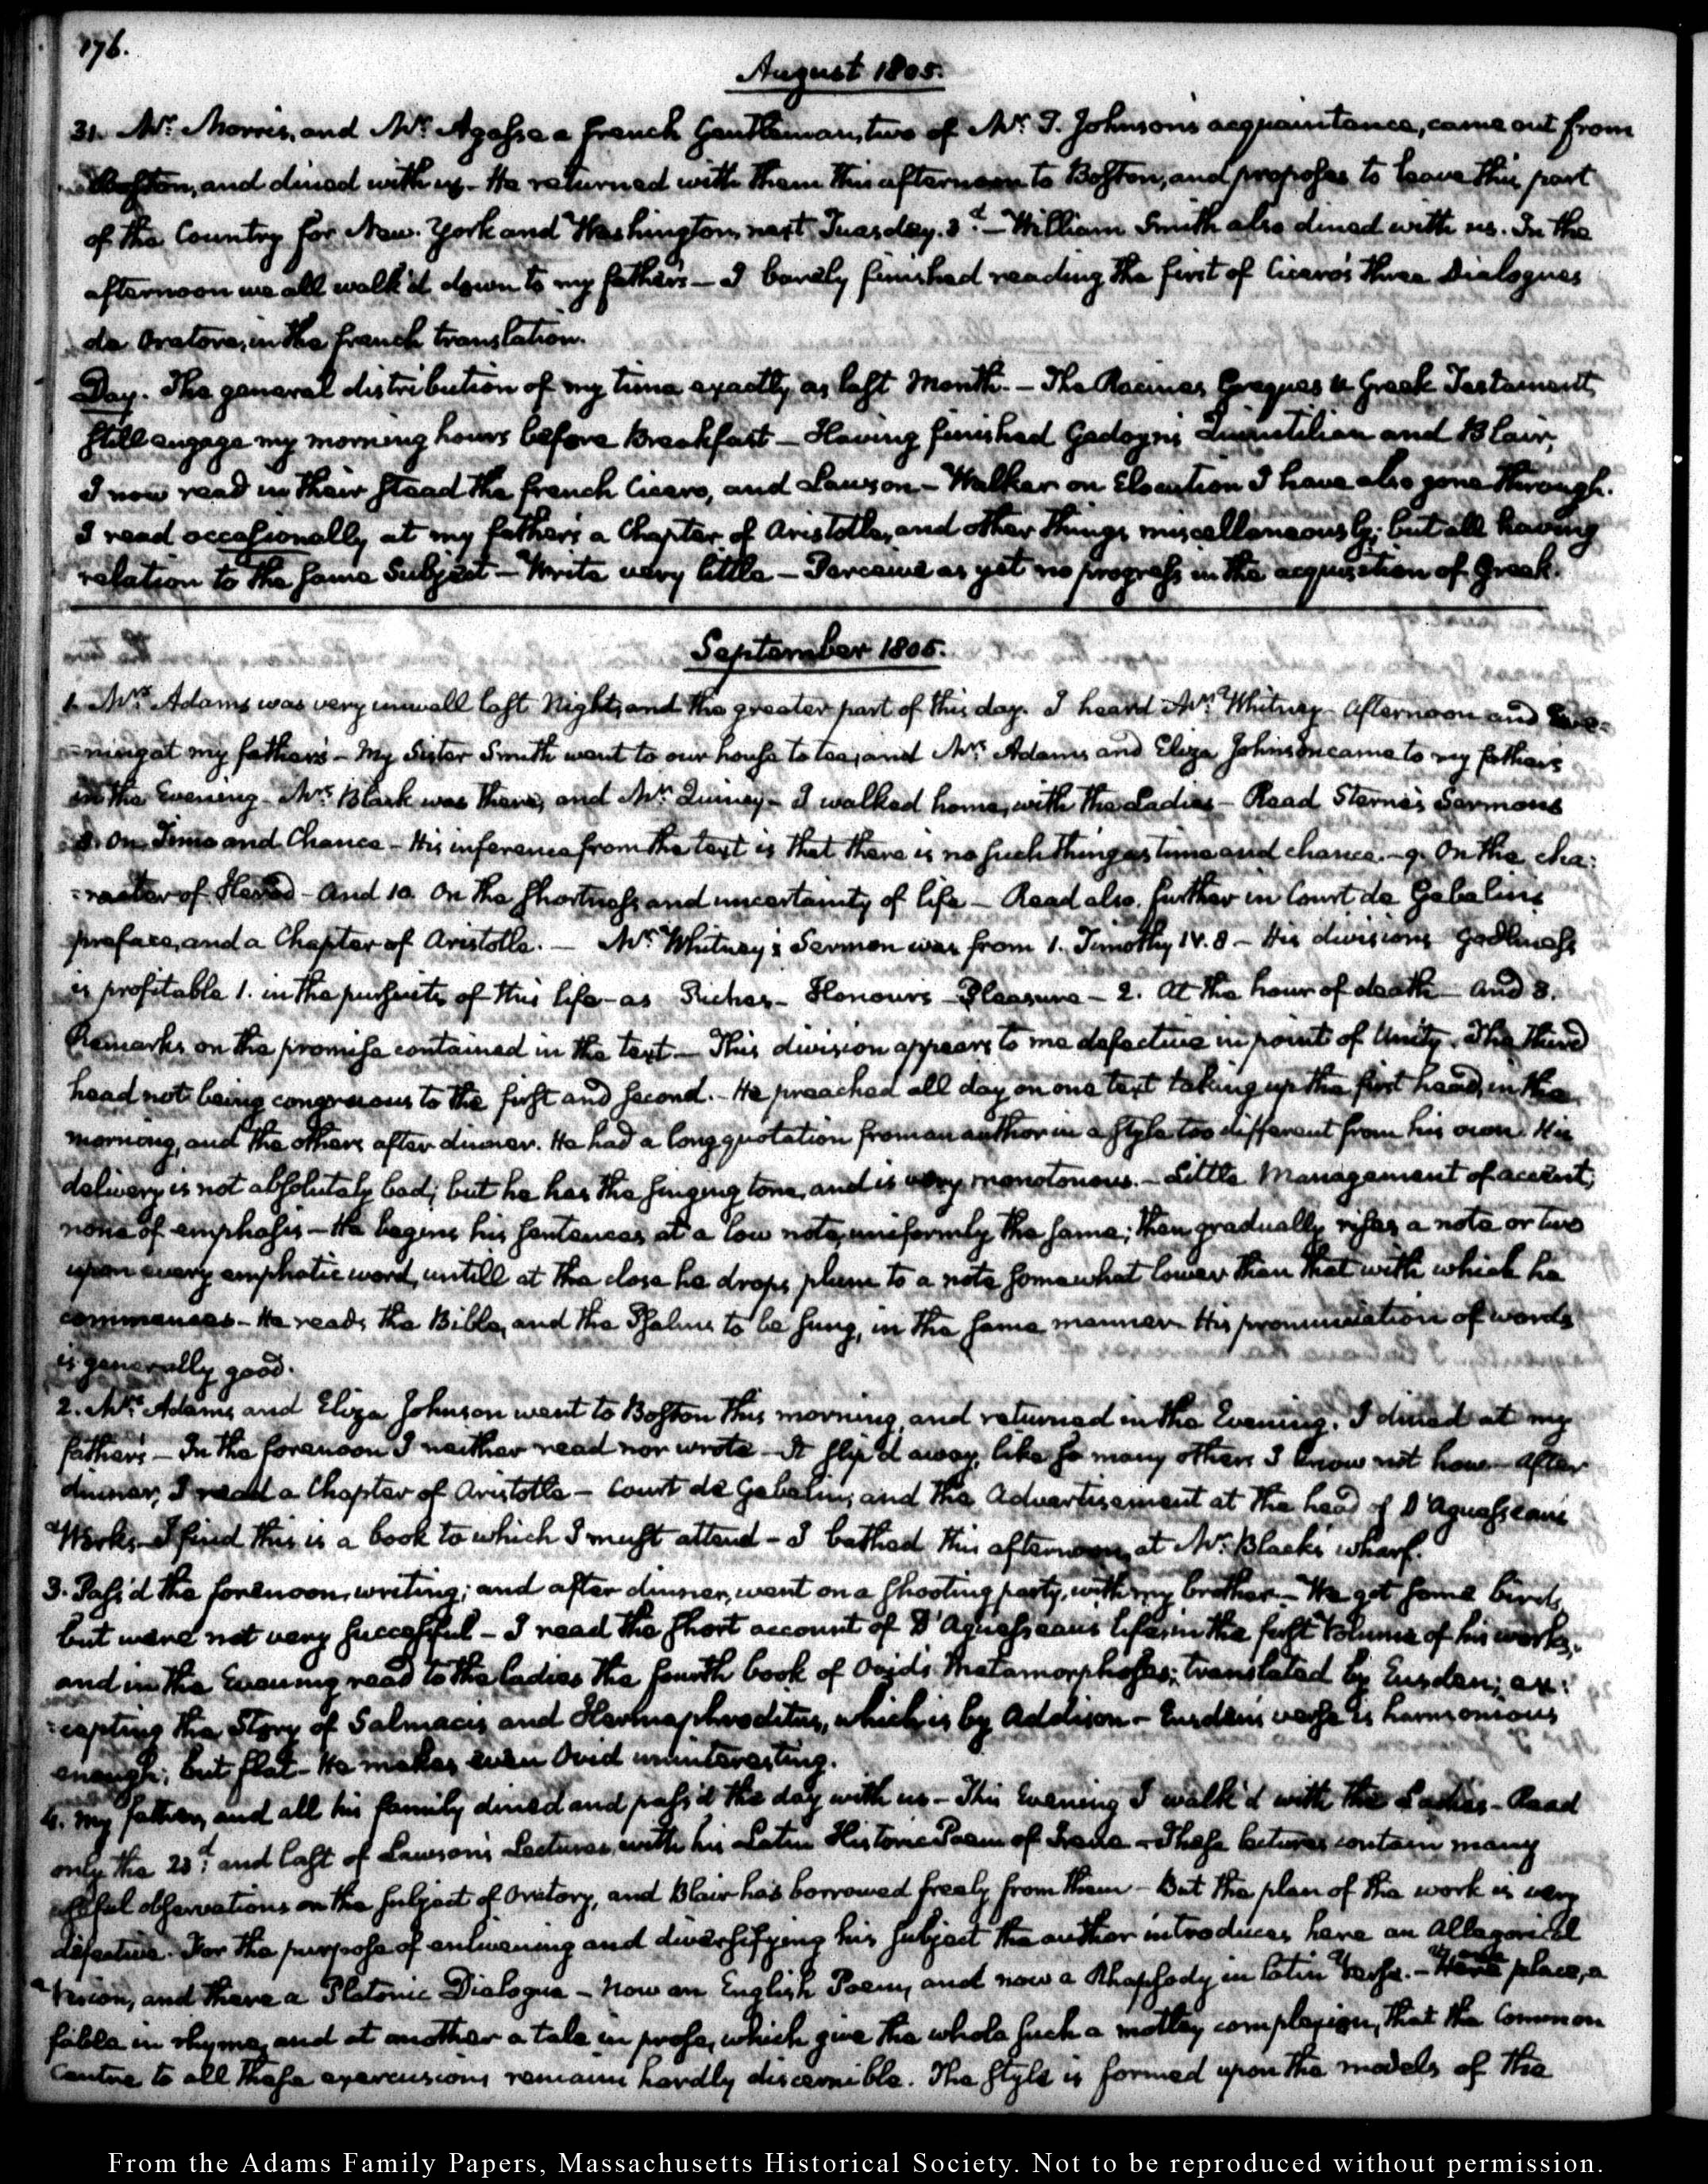 176.
August 1805.
31. Mr. Morris, and Mr. Agasse a french Gentleman, two of Mr. T. Johnson's acquaintance, came out from
Boston, and dined with us. He returned with them this afternoon to Boston, and proposes to leave this part
of the Country for New-York and Washington, next Tuesday. 3d. — William Smith also dined with us. In the
afternoon we all walk'd down to my father's — I barely finished reading the first of Cicero's three Dialogues
de Oratore, in the french translation.
Day. The general distribution of my time exactly as last Month. — The Racines Grecques & Greek Testament,
still engage my morning hours before Breakfast — Having finished Gedoyn's Quinctilian and Blair,
I now read in their stead the french Cicero, and Lawson — Walker on Elocution I have also gone through.
I read occasionally at my father's a Chapter of Aristotle, and other things miscellaneously; but all having
relation to the same Subject — Write very little — Perceive as yet no progress in the acquisition of Greek.
September 1805.
1. Mrs. Adams was very unwell last Night, and the greater part of this day. I heard Mr. Whitney. Afternoon and Eve-
-ning at my father's — My Sister Smith went to our house to tea, and Mrs. Adams and Eliza Johnson came to my father's
in the Evening. Mrs. Black was there, and Mr. Quincy — I walked home, with the Ladies — Read Sterne's Sermons
8. On Time and Chance — His inference from the text is that there is no such thing as time and chance. — 9. On the cha-
-racter of Herod — And 10. On the shortness and uncertainty of life — Read also, further in Court de Gebelin's
preface, and a Chapter of Aristotle. — Mr. Whitney's Sermon was from 1. Timothy IV. 8 — His divisions Godliness
is profitable 1. in the pursuits of this life — as Riches — Honours — Pleasure — 2. At the hour of death — and 3.
Remarks on the promise contained in the text — This division appears to me defective in point of Unity. The third
head not being congruous to the first and second. — He preached all day on one text taking up the first head, in the
morning, and the others after dinner. He had a long quotation from an author in a style too different from his own. His
delivery is not absolutely bad; but he has the singing tone, and is very monotonous. — Little Management of accent,
none of emphasis — He begins his sentences at a low note, uniformly the same; then gradually rises a note or two
upon every emphatic word, untill at the close he drops plum to a note somewhat lower than that with which he
commences — He reads the Bible, and the Psalms to be sung, in the same manner. His pronunciation of words
is generally good.
2. Mrs. Adams and Eliza Johnson went to Boston this morning, and returned in the Evening. I dined at my
father's — In the forenoon I neither read nor wrote — It slip'd away, like so many others I know not how — After
dinner, I read a Chapter of Aristotle — Court de Gebelin, and the Advertisement at the head of D'Aguesseau's
Works — I find this is a book to which I must attend — I bathed this afternoon, at Mr. Black's wharf.
3. Pass'd the forenoon, writing; and after dinner, went on a shooting party, with my brother — We got some birds,
but were not very successful — I read the short account of D'Aguesseau's life, in the first Volume of his works,
and in the Evening read to the ladies the fourth book of Ovid's Metamorphoses; translated by Eusden; ex-
-cepting the Story of Salmacis and Hermaphroditus, which is by Addison — Eusden's verse is harmonious
enough; but flat — He makes even Ovid uninteresting.
4. My father, and all his family dined and pass'd the day with us — This Evening I walk'd with the Ladies — Read
only the 23d. and last of Lawson's Lectures, with his Latin Historic Poem of Irene — These lectures contain many
useful observations on the subject of Oratory, and Blair has borrowed freely from them — But the plan of the work is very
defective. For the purpose of enlivening and diversifying his subject the author introduces here an Allegorical
Vision, and there a Platonic Dialogue — Now an English Poem, and now a Rhapsody in latin Verse. — place, a
fable in rhyme, and at another a tale in prose, which give the whole such a motley complexion, that the Common
Centre to all these excursions remains hardly discernible. The Style is formed upon the models of the
From the Adams Family Papers, Massachusetts Historical Society. Not to be reproduced without permission.